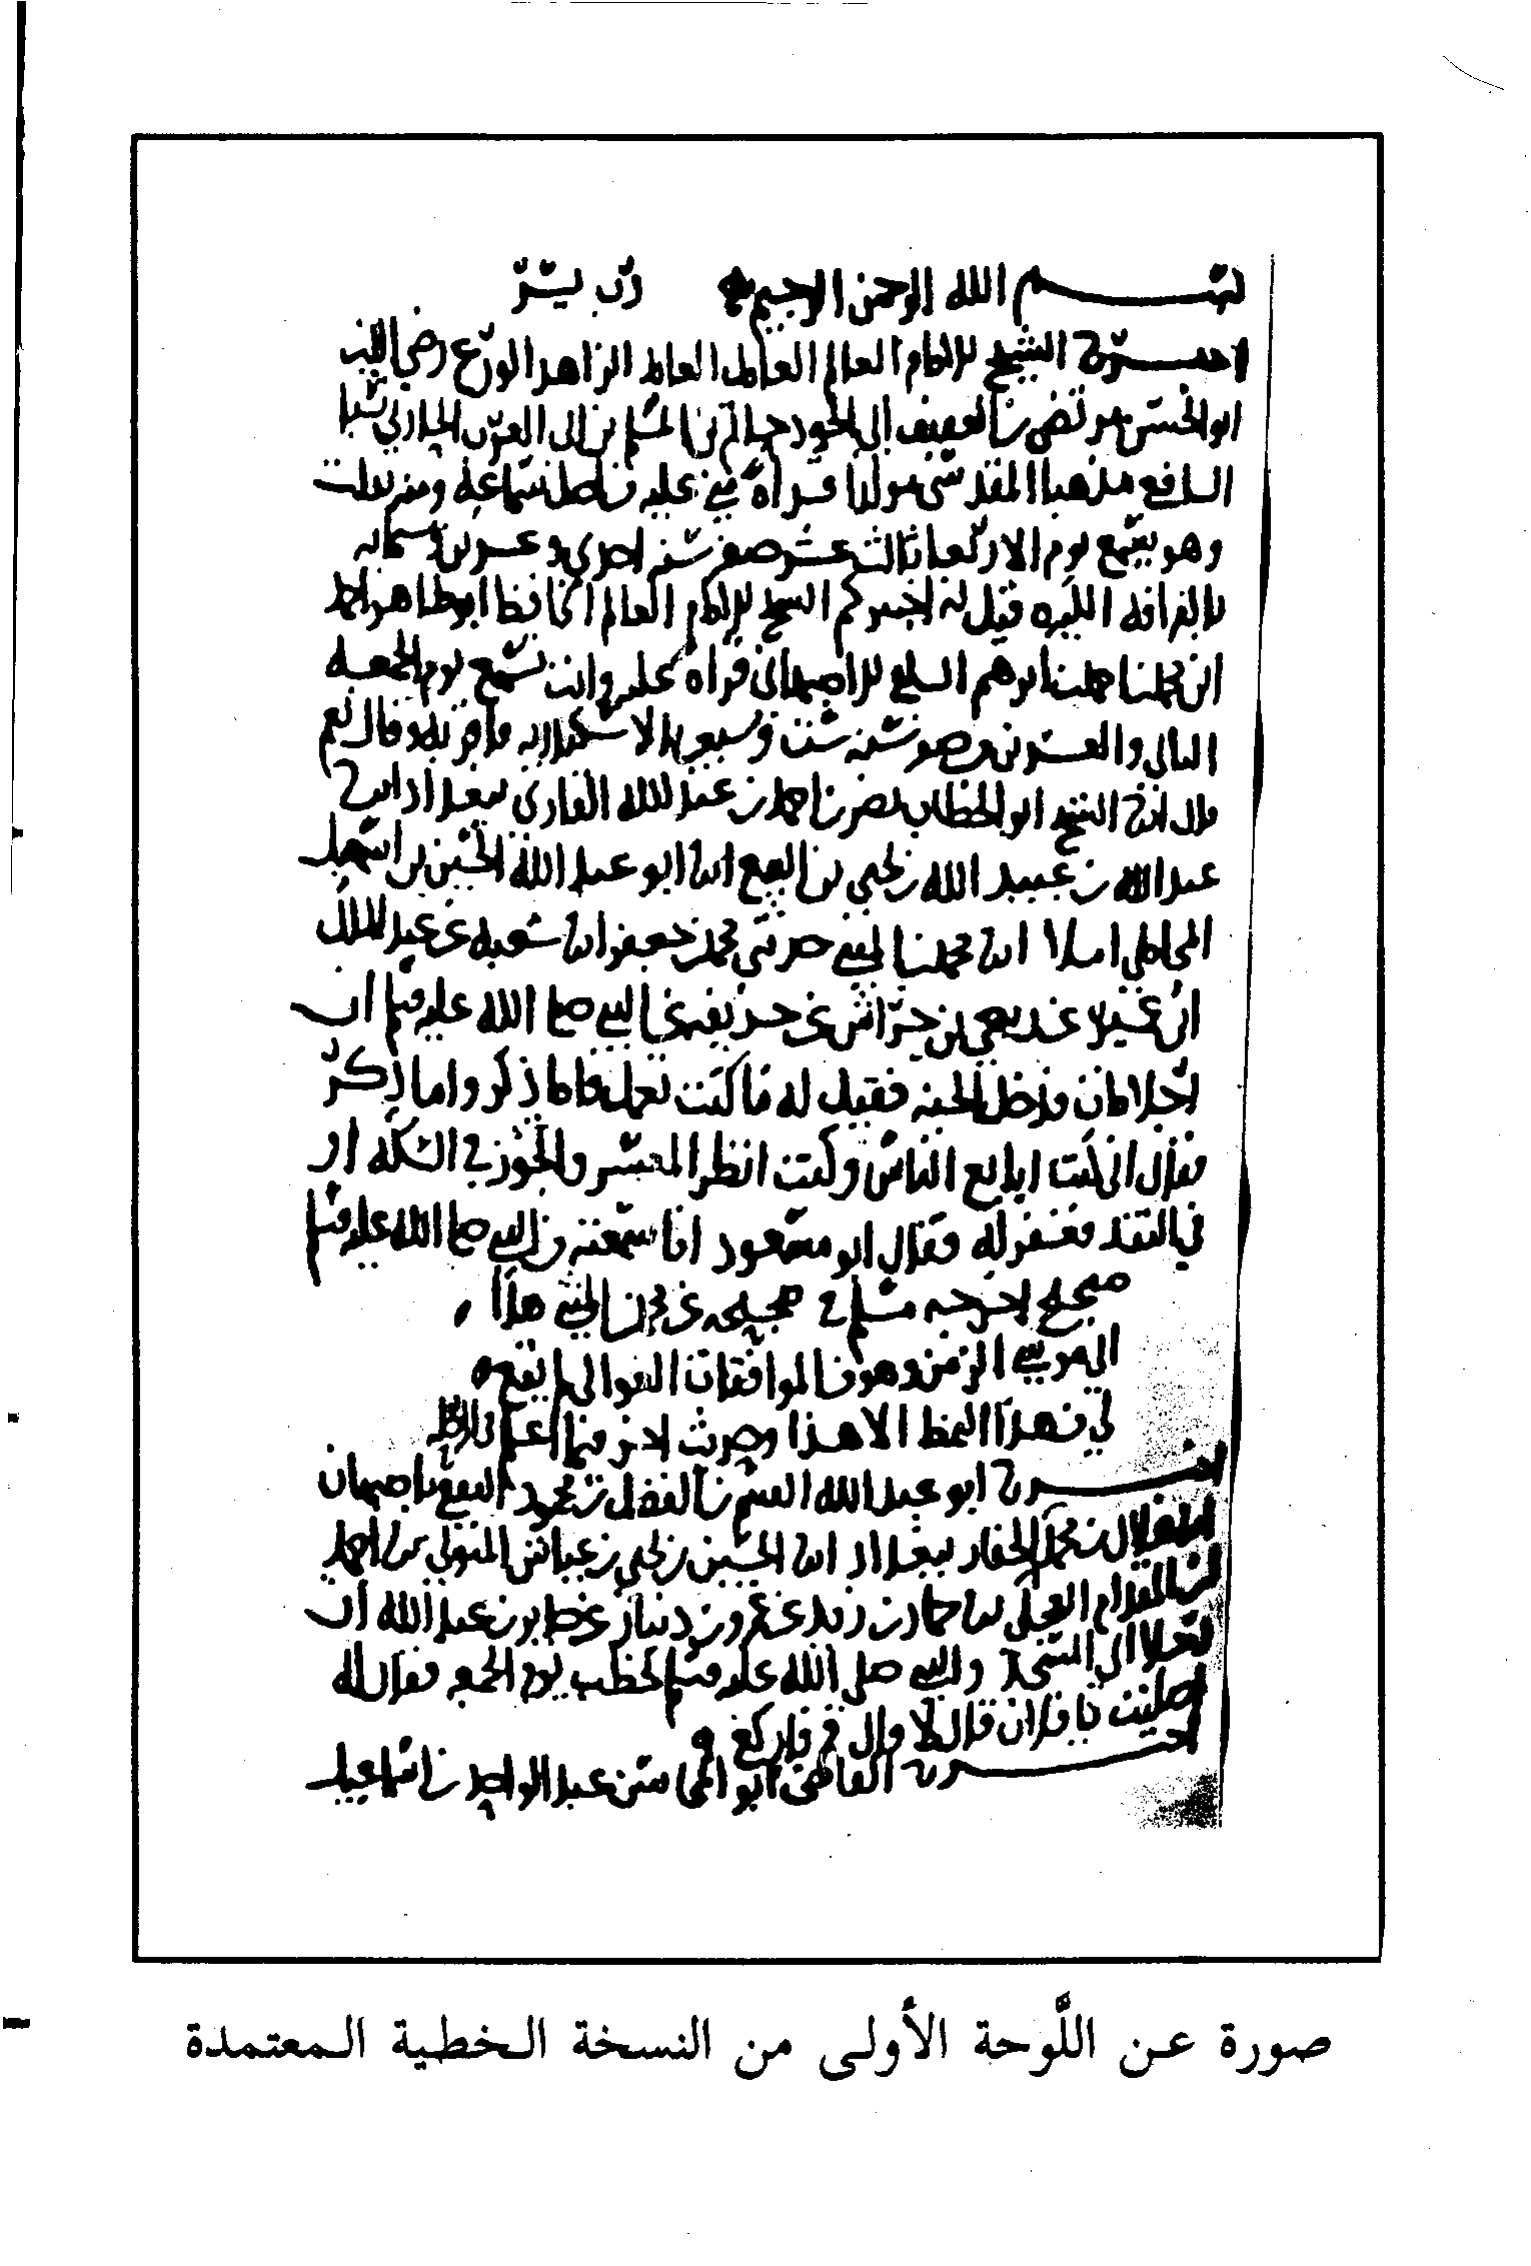 بسم الله الرحمن الرحيم رب يسر
اخبرنا الشيخ الامام العالم العامل الزاهد الورع رضي الدين
ابو الحسن مرتضى بن العفيف ابي الجود حاتم بن المسلم بن ابي العرب الحارثي نسبا
الشافعي مذهبا المقدسي مولدا قراة مني عليه من اصل سماعه ومنه نقلت
وهو يسمع يوم الاربعا ثالث عشر صفر سنه احدى وعشرين وستمايه
بالقرافه الكبره قيل له اخبركم الشيخ الامام العالم الحافظ ابو طاهر احمد
ابن محمد بن احمد بن ابرهيم السلفي الاصبهاني قراة عليه وانت تسمع يوم الجمعه
الثاني والعشرين من صفر سنه ست وسبعين بالاسكندريه فاقر به وقال نعم
قال انا الشيخ ابو الخطاب نصر بن احمد بن عبد الله القارئ ببغداد انا
عبد الله بن عبيد الله بن يحيى بن البيع انا ابو عبد الله الحسين بن اسمعيل
المحاملي املا انا محمد بن المثنى حدثني محمد بن جعفر انا شعبه عن عبد الملك
ابن عمير عن ربعي بن حراش عن حذيفه عن النبي صلى الله عليه وسلم ان
رجلا مات فدخل الجنه فقيل له ما كنت تعمل فاما ذكر واما ذكر
فقال اني كنت ابايع الناس وكنت انظر المعسر واتجوز في السكه او
في النقد فغفر له فقال ابو مسعود انا سمعته من النبي صلى الله عليه وسلم
صحيح اخرجه مسلم في صحيحه عن محمد بن المثنى هذا
ابي موسى الزمن وهو من الموافقات العوالي لم يقع
لي من هذا النمط الا هذا وحديث اخر فيما اعلم
اخبرنا ابو عبد الله القسم بن الفضل بن محمود الثقفي باصبهان
انا هلال بن محمد الحفار ببغداد انا الحسين بن يحيى بن عياش المتوثي نا احمد
بن المقدام العجلي نا حماد بن زيد عن عمرو بن دينار عن جابر بن عبد الله ان
رجلا اتى المسجد والنبي صلى الله عليه وسلم يخطب يوم الجمعه فقال له
اصليت يا فلان قال لا قال قم فاركع
اخبرنا القاضي ابو المحاسن عبد الواحد بن اسماعيل
صورة عن اللَّوحة الأولى من النسخة الخطية المعتمدة